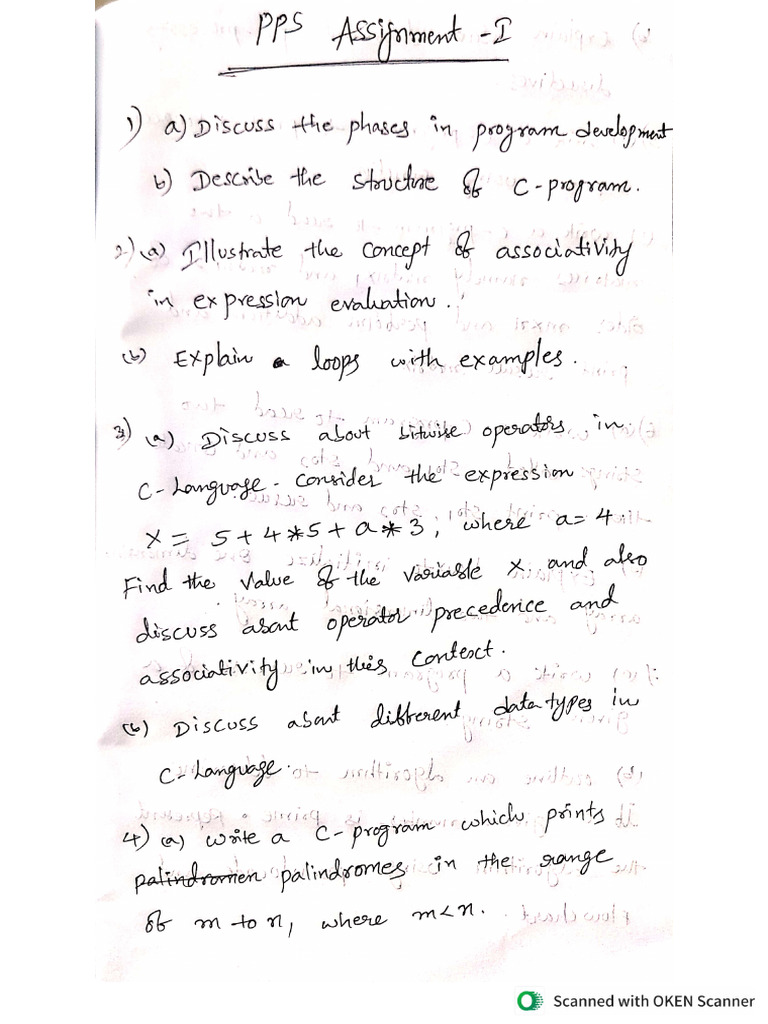 PPS Assignment - I
1) a) Discuss the phases in program development
b) Describe the structure of C-program.
2) (a) Illustrate the concept of associativity
in expression evaluation.
(b) Explain loops with examples.
3) (a) Discuss about bitwise operators in
C-Language. Consider the expression
x = 5+4*5+a*3, where a=4.
Find the value of the variable x and also
discuss about operator precedence and
associativity in this context.
(b) Discuss about different data types in
C-Language.
4) (a) write a C-program which prints
palindromen palindromes in the range
of m to n, where m<n.
Scanned with OKEN Scanner